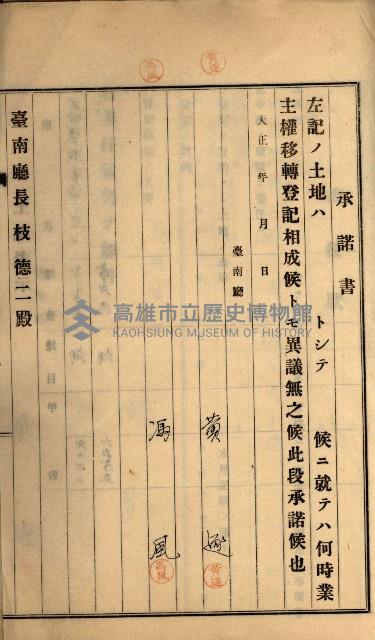 承諾書
左記ノ土地ハ トシテ 候ニ就テハ何時業
主權移轉登記相成候トモ異議無之候此段承諾候也
大正 年 月 日
臺南廳
黃
馮 風
臺南廳長枝德二殿
高雄市立歷史博物館
KAOHSIUNG MUSEUM OF HISTORY